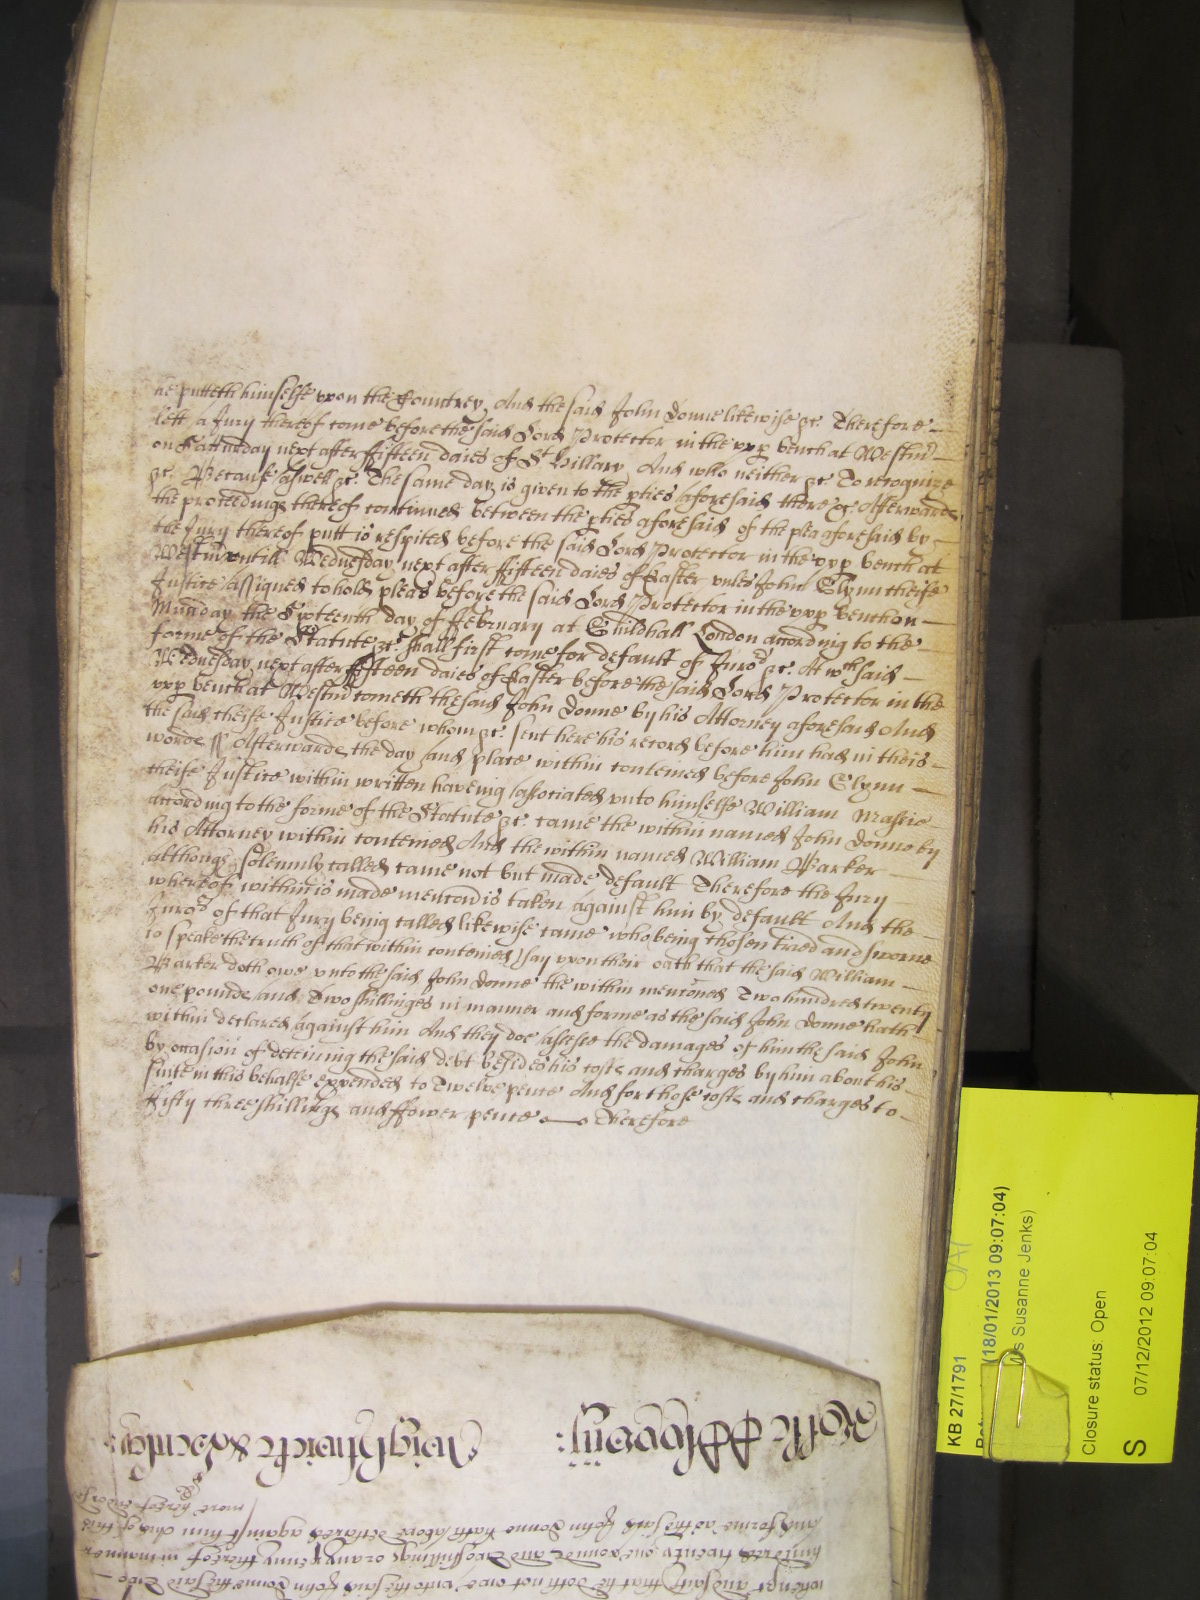 he putteth himselfe vpon the Countrey And the said John Donne likewise &c. Therefore
lett a Jury thereof come before the said Lord Protector in the vpp bench at Westmr
on Satturday next after fifteen daies of St. Hillary And who neither &c. To recognize
&c. Because aswell &c. The same day is given to the pties aforesaid there &c. Afterwards
the proceedings thereof continued between the pties aforesaid of the plea aforesaid by
the Jury thereof putt is respited before the said Lord Protector in the vpp bench at
Westmr vntill Wednesday next after fifteen daies of Easter vnles John Glynn cheife
Justice assigned to hold pleas before the said Lord Protector in the vpp bench on
Munday the Sixteenth day of February at Guildhall London according to the
forme of the Statute &c. shall first come for default of Juro:rs &c. At wch said
Wednesday next after fifteen daies of Easter before the said Lord Protector in the
vpp bench at Westmr cometh the said John Donne by his Attorney aforesaid And
the said cheife Justice before whom &c. sent here his record before him had in theis
wordes ss Afterwards the day and place within conteined before John Glynn
cheife Justice within written haveing associated vnto himselfe William
according to the forme of the Statute &c. came the within named John Donne by
his Attorney within conteined And the within named William Parker
although solemnly called came not but made default Therefore the Jury
whereof within is made mencon is taken against him by default And the
Juro:rs of that Jury being called likewise came who being chosen tried and sworne
to speake the truth of that within conteined say vpon their oath that the said William
Parker doth owe vnto the said John Donne the within menconed Two hundred twenty
one pounds and Two shillinges in manner and forme as the said John Donne hath
within declared against him And they doe assesse the damages of him the said John
by occasion of deteining the said debt besides his costs and charges by him about his
suite in this behalfe expended to Twelve pence And for those costs and charges to
fifty three shillings and ffower pence Therefore
KB 27/1791
(18/01/2013 09:07:04)
Susanne Jenks)
Closure status: Open
S
07/12/2012 09:07:04
whength and saith that he doth not owe vnto the said John Donne the said Two
hundred twenty one pounds and Two shillings or any penny thereof in manner
and forme as the said John Donne hath above declared against him And of this
more hereof